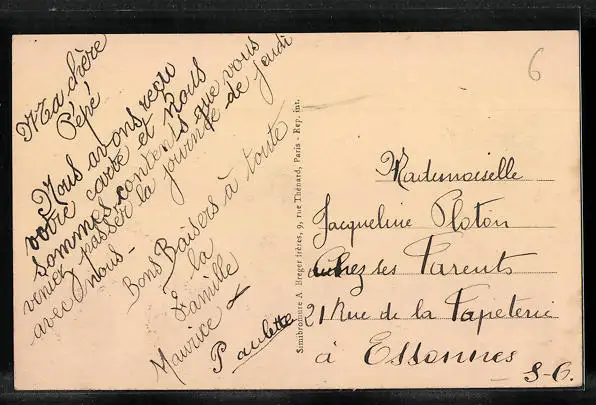 Ma chère
Pépé
Nous avons reçu
votre carte et nous
sommes contents que vous
veniez passer la journée de jeudi
avec nous -
Bons Baisers à toute
la
Famille
Maurice &
Paulette
Simibromure A Breger frères, 9, rue Thénard, Paris - Rep. int.
6
Mademoiselle
Jacqueline Ploton
chez ses Parents
21 Rue de la Papeterie
à Essonnes
S-O.